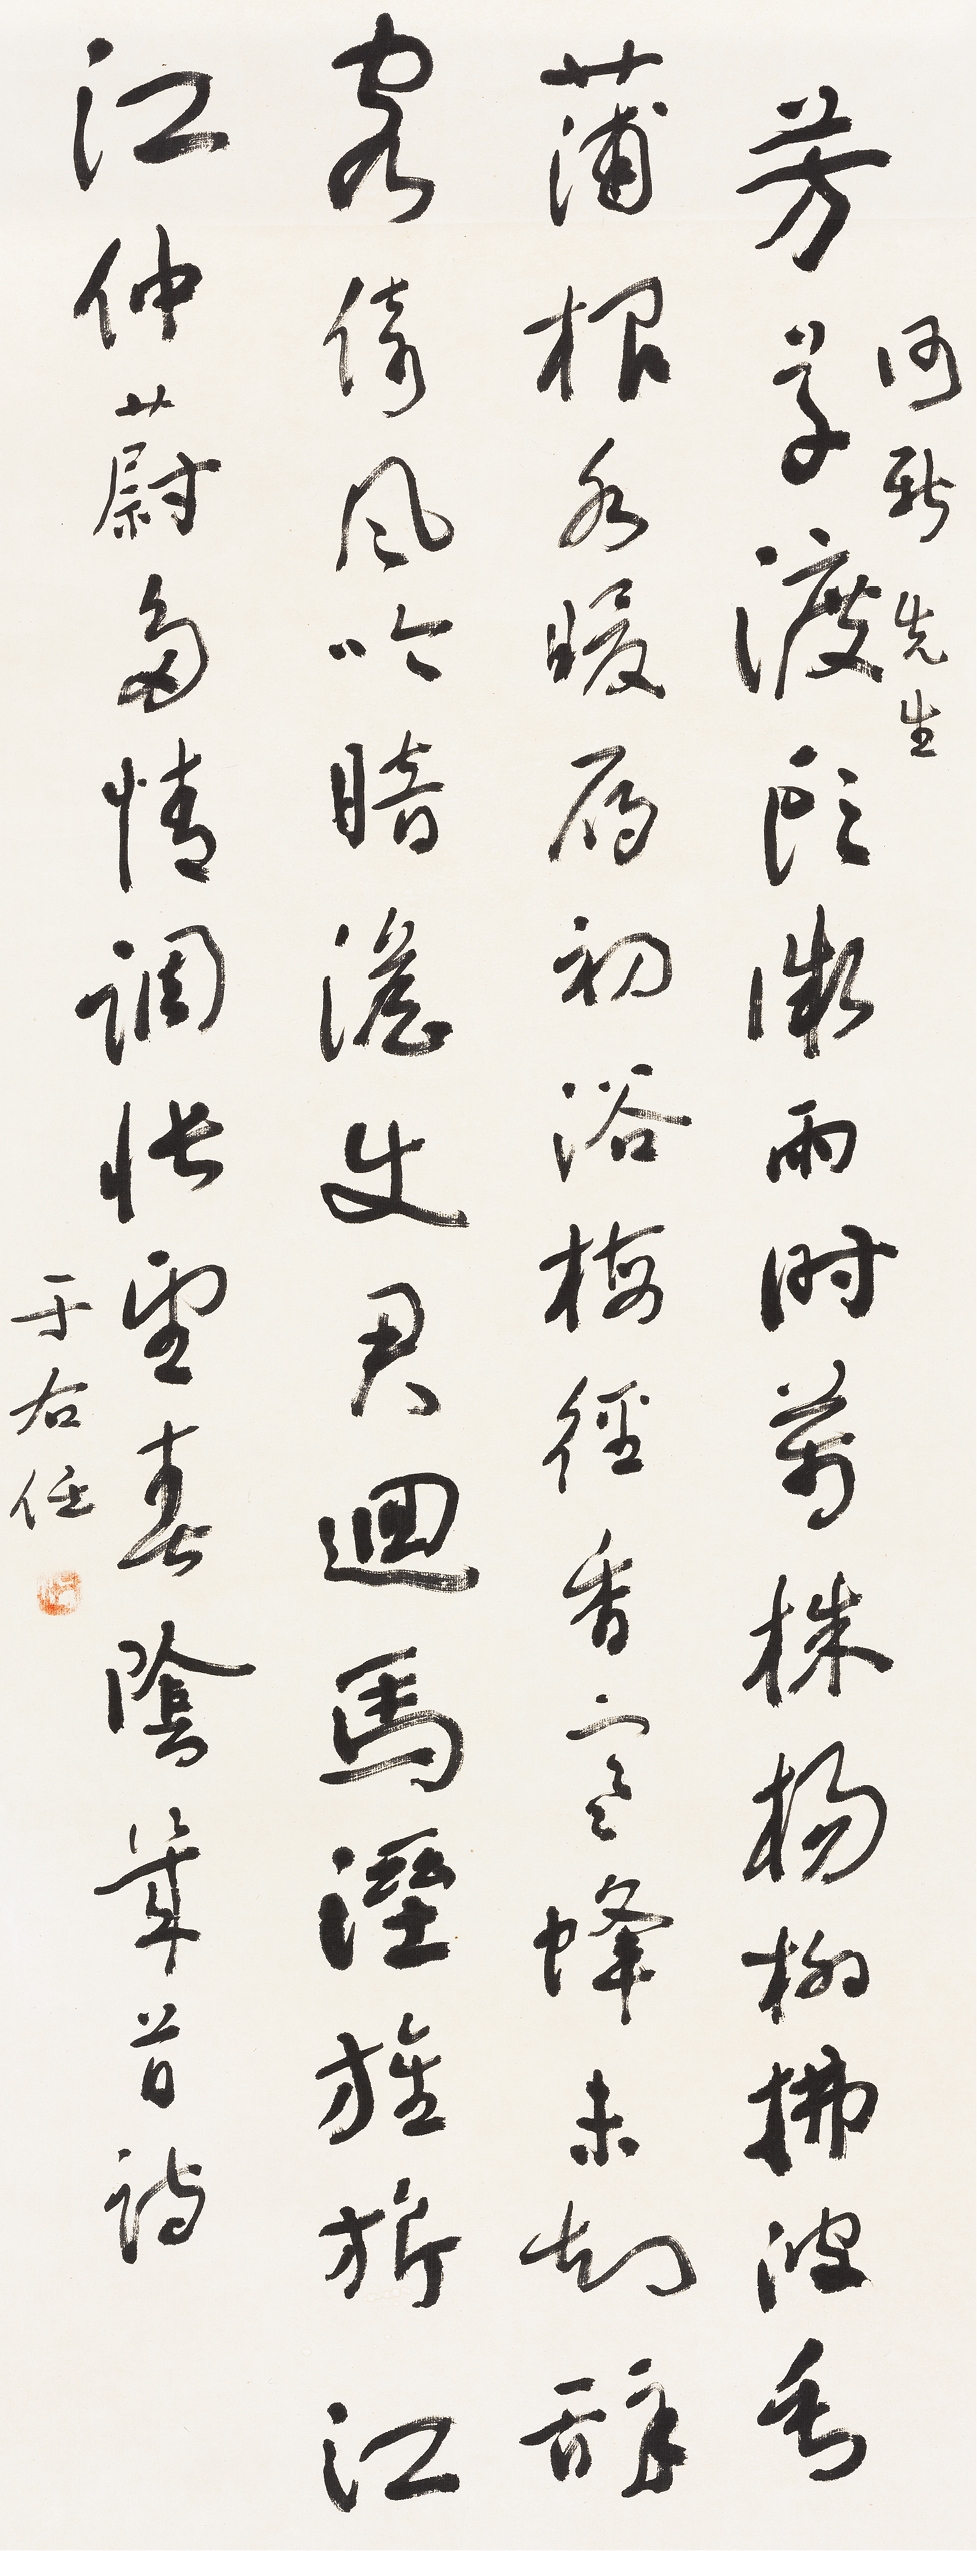 先生
芳草渡頭微雨時萬株楊柳拂波垂
蒲根水暖雁初浴梅徑香寒蜂未知辭
客倚風吟暗澹史君迴馬溼旌旂江
江仲蔚多情調悵望春陰幾首詩
于右任